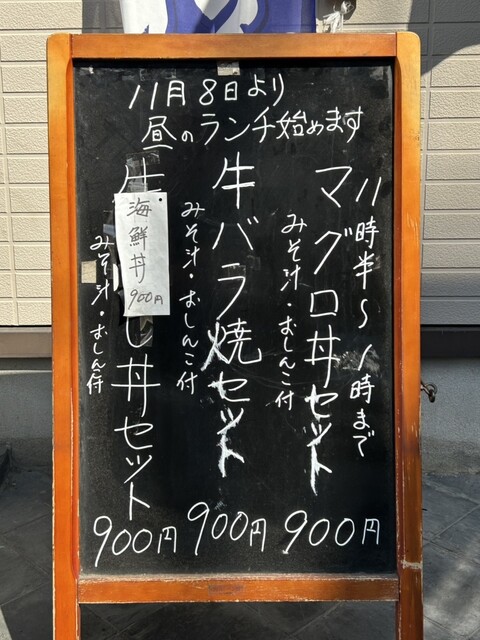 11月8日より
昼のランチ始めます
11時半～1時まで
マグロ丼セット
みそ汁・おしんこ付
900円
牛バラ焼セット
みそ汁・おしんこ付
900円
海鮮丼
900円
し丼セット
みそ汁・おしんこ付
900円